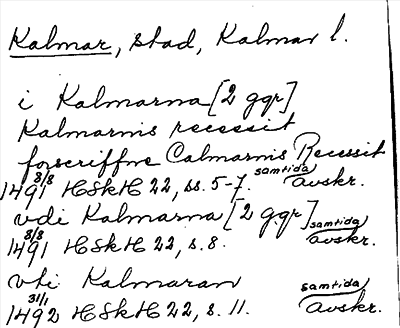 Kalmar, stad, Kalmar l.
i Kalmarna [2 ggr]
Kalmarnis recessit
forscriffne Calmarnis Recessit
1491 8/8 HSkH 22, ss. 5-7. samtida avskr.
vdi Kalmarna [2 ggr]
1491 8/8 HSkH 22, s. 8. samtida avskr.
vti Kalmaran
1492 31/1 HSkH 22, s. 11. samtida avskr.